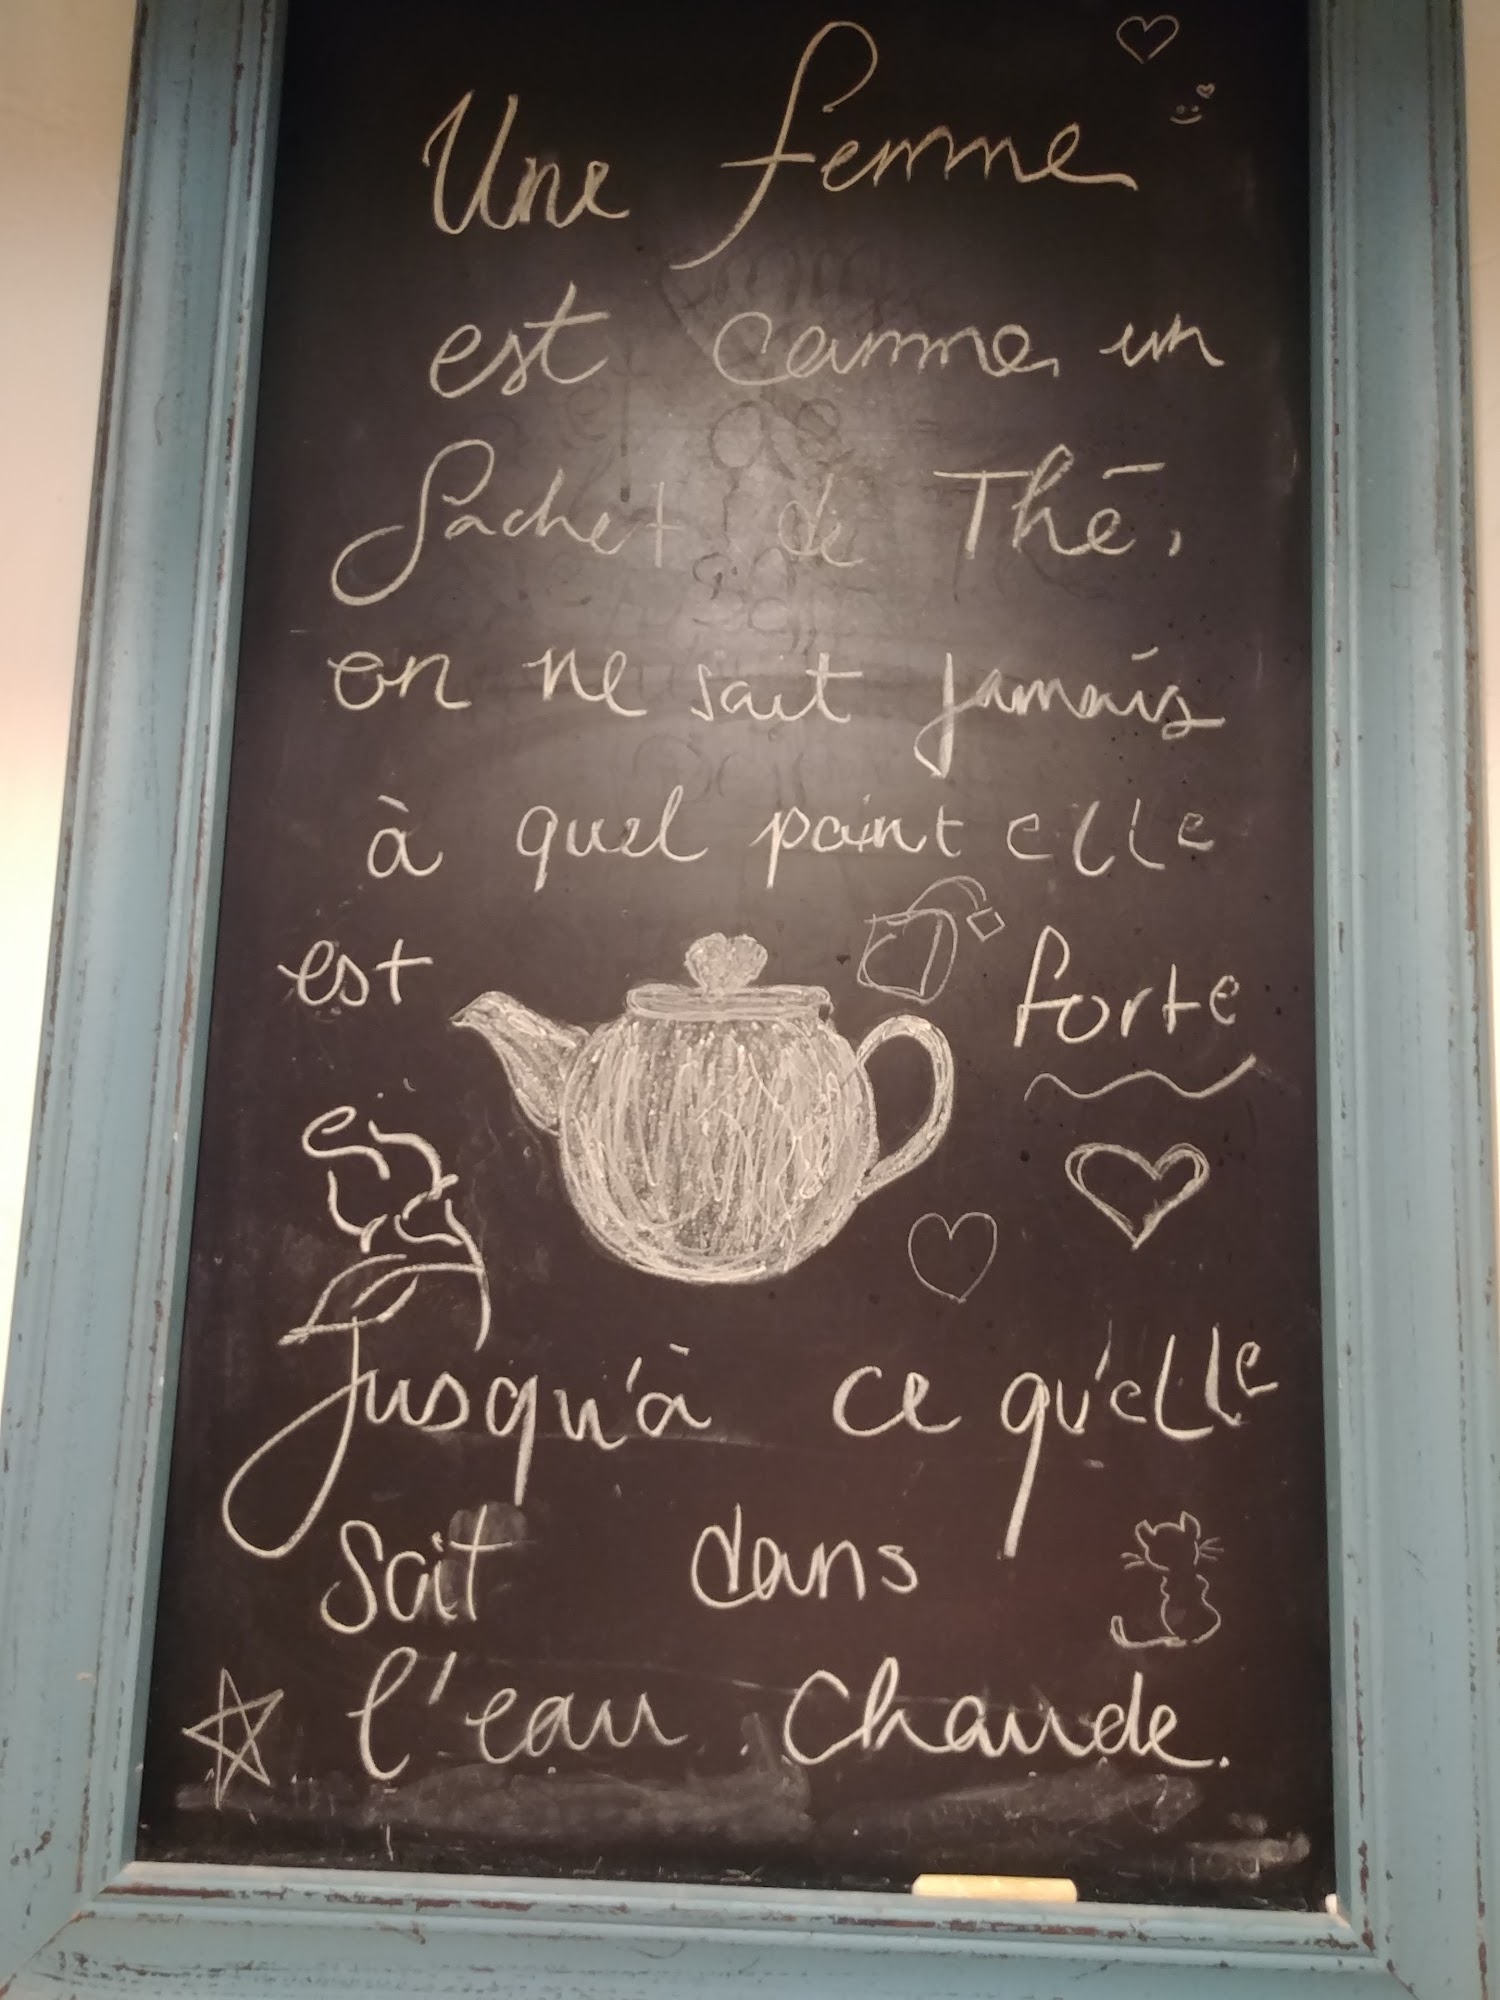 Une femme
est comme un
Sachet de Thé,
on ne sait jamais
à quel point elle
est forte
Jusqu'à ce qu'elle
soit dans
l'eau chaude.